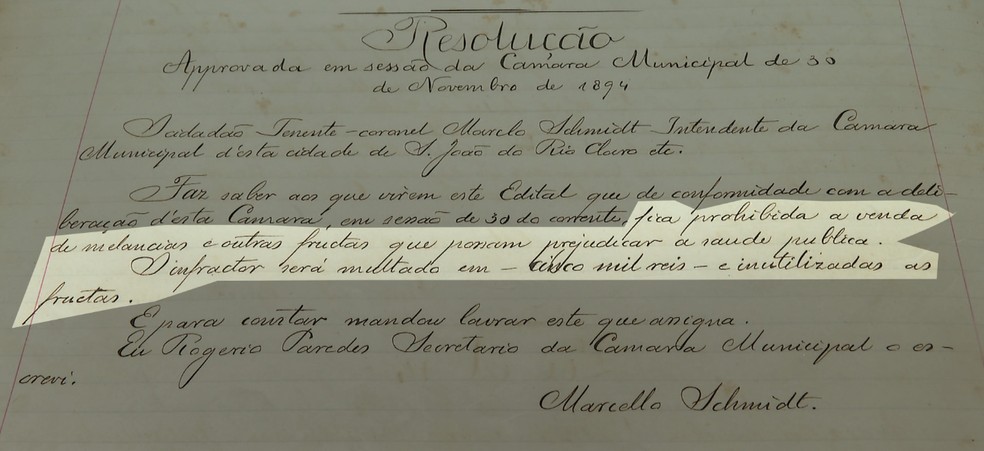 Resolução
Approvada em sessão da Camara Municipal de 30
de Novembro de 1894
O cidadão Tenente-coronel Marcelo Schmidt Intendente da Camara
Municipal d'esta cidade de S. João do Rio Claro etc.
Faz saber aos que virem este Edital que de conformidade com a deli-
beração d'esta Camara, em sessão de 30 do corrente, fica prohibida a venda
de melancias e outras fructas que possam prejudicar a saude publica.
O infractor será multado em - cinco mil reis - e inutilizadas as
fructas.
E para constar mandou lavrar este que assigna.
Eu Rogerio Paredes Secretario da Camara Municipal o es-
crevi.
Marcello Schmidt.